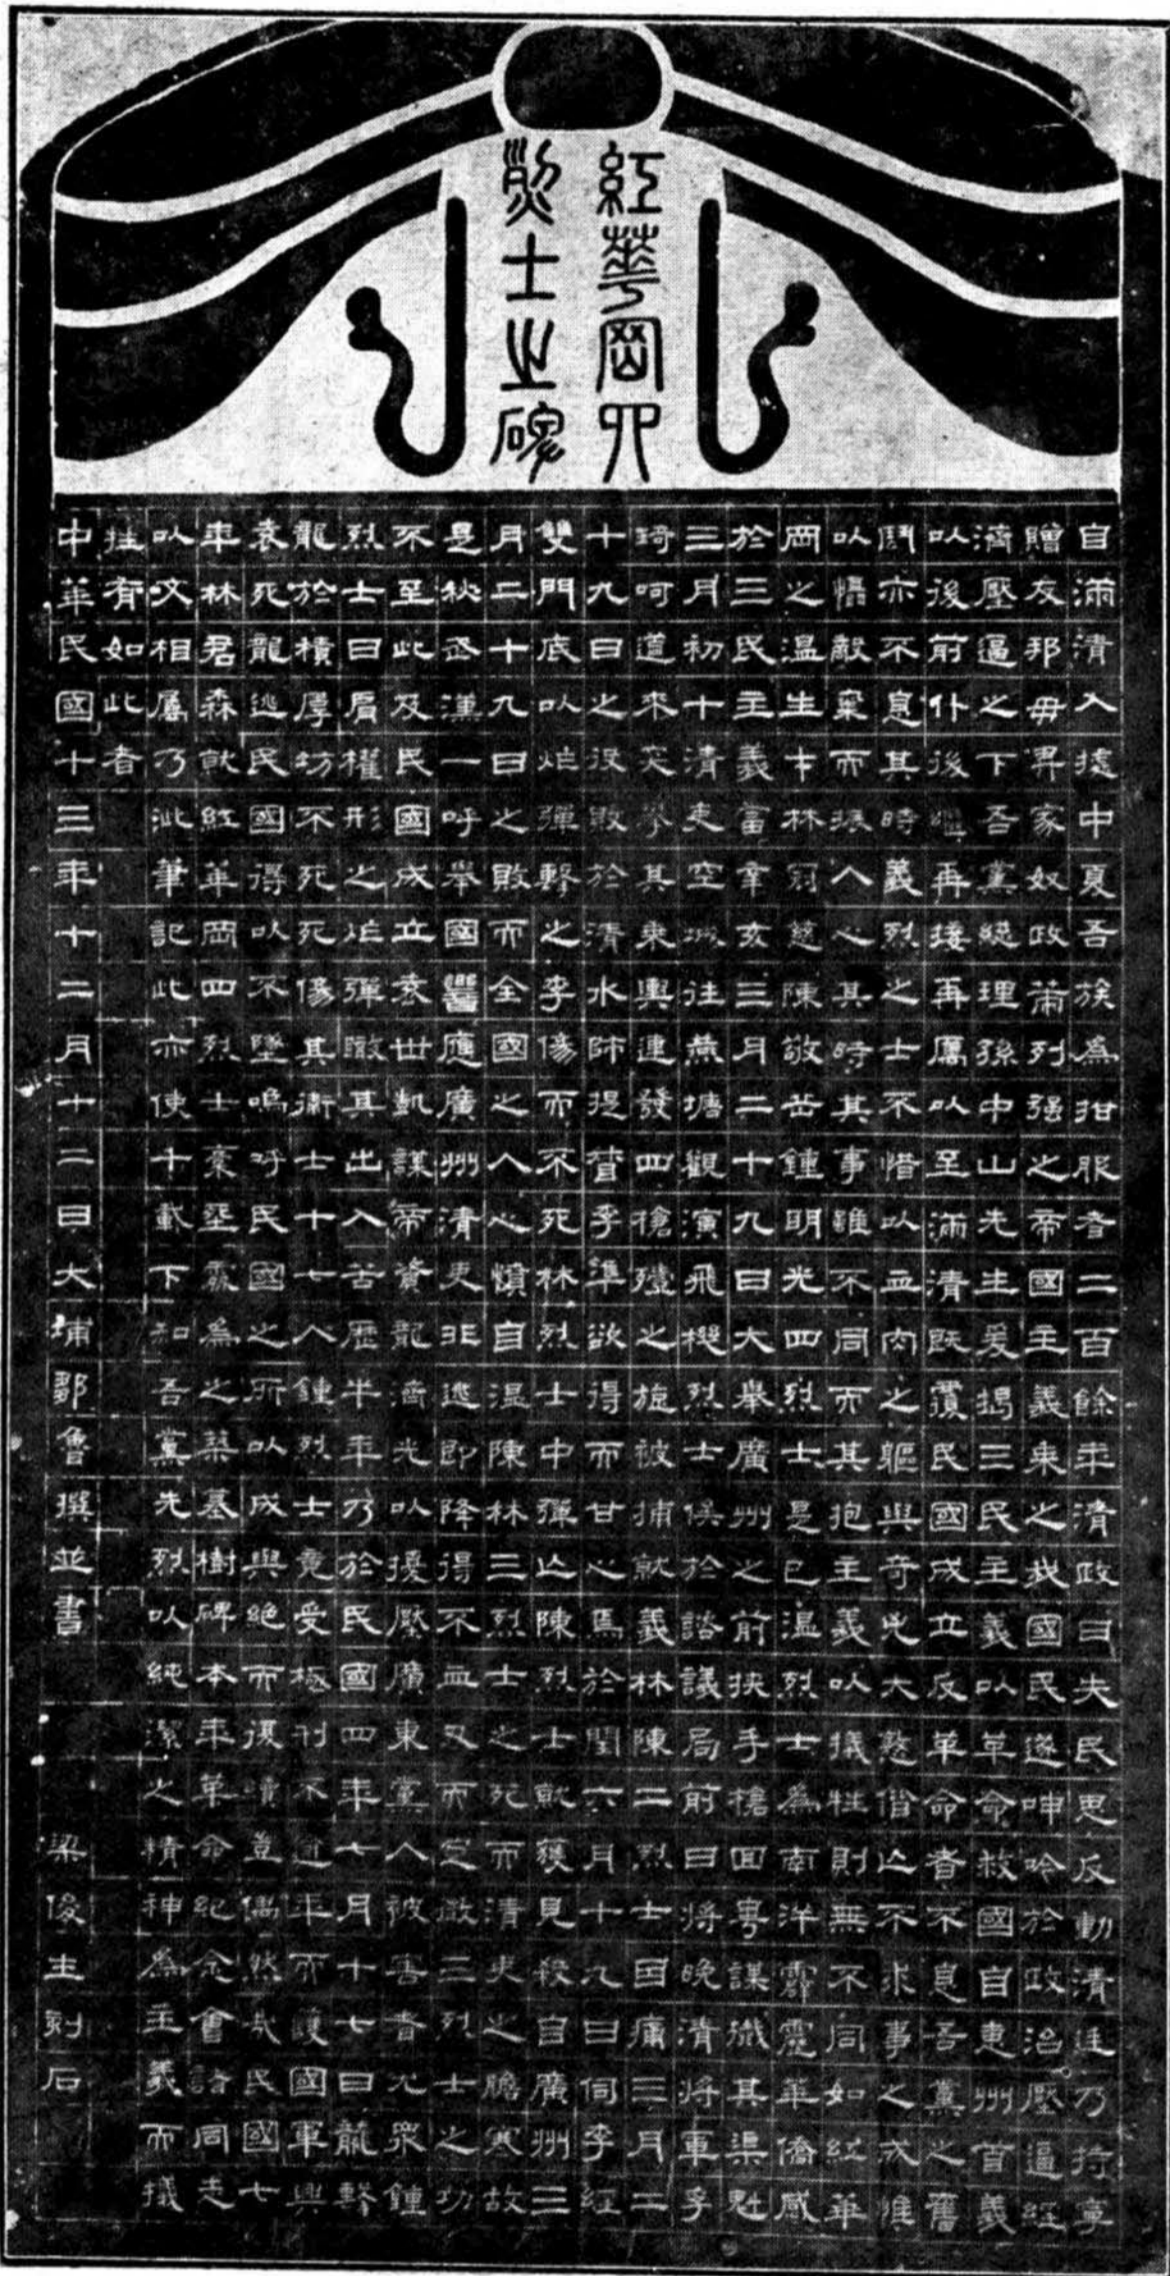 紅華岡四
烈士之碑
自滿清入據中夏吾族為拑服者二百餘年清政日失民思反動清廷乃持寧
贈友邦毋畀家奴政策列强之帝國主義乘之我國民遂呻吟於政治壓逼經
濟壓逼之下吾黨總理孫中山先生爰揭三民主義以革命救國自惠州首義
以後前仆後繼再接再厲以至滿清旣覆民國成立反革命者不息吾黨之舊
鬪亦不息其時義烈之士不惜以血肉之軀與奇兇大憝偕亡不求事之成惟
以懾敵棄而振人心其時其事雖不同而其抱主義以犧牲則無不同如紅華
岡之温生才林冠慈陳敬岳鍾明光四烈士是已温烈士為南洋霹靂華僑感
於三民主義當辛亥三月二十九日大舉廣州之前挾手槍回粤謀殲其渠魁
三月初十清吏空城往燕塘觀演飛機烈士俟於諮議局前日將晚清將軍孚
琦呵道來突攀其乘輿連發四槍殪之旋被捕就義林陳二烈士因痛三月二
十九日之役敗於清水師提督李準欲得而甘心焉於閏六月十九日伺李經
雙門底以炸彈擊之李傷而不死林烈士中彈亡陳烈士就獲見殺自廣州三
月二十九日之敗而全國之人心憤自温陳林三烈士之死而清吏之膽寒故
是秋武漢一呼舉國響應廣州清吏非逃即降得不血刃而定微三烈士之功
不至此及民國成立袁世凱謀帝資龍濟光以擾壓廣東黨人被害者尤衆鍾
烈士日肩權形之炸彈瞰其出入苦歷半年乃於民國四年七月十七日龍擊
龍於積厚坊不死死傷其衛士十七人鍾烈士竟受極刑不逾年而護國軍興
袁死龍逃民國得以不墜嗚呼民國之所以成與絕而復續豈偶然哉民國七
年林君森就紅華岡四烈士槀葬處為之築墓樹碑本年革命紀念會諸同志
以文相屬乃泚筆記此亦使千載下知吾黨先烈以純潔之精神為主義而犧
牲有如此者
中華民國十三年十二月十二日大埔鄒魯撰並書 梁俊生刻石